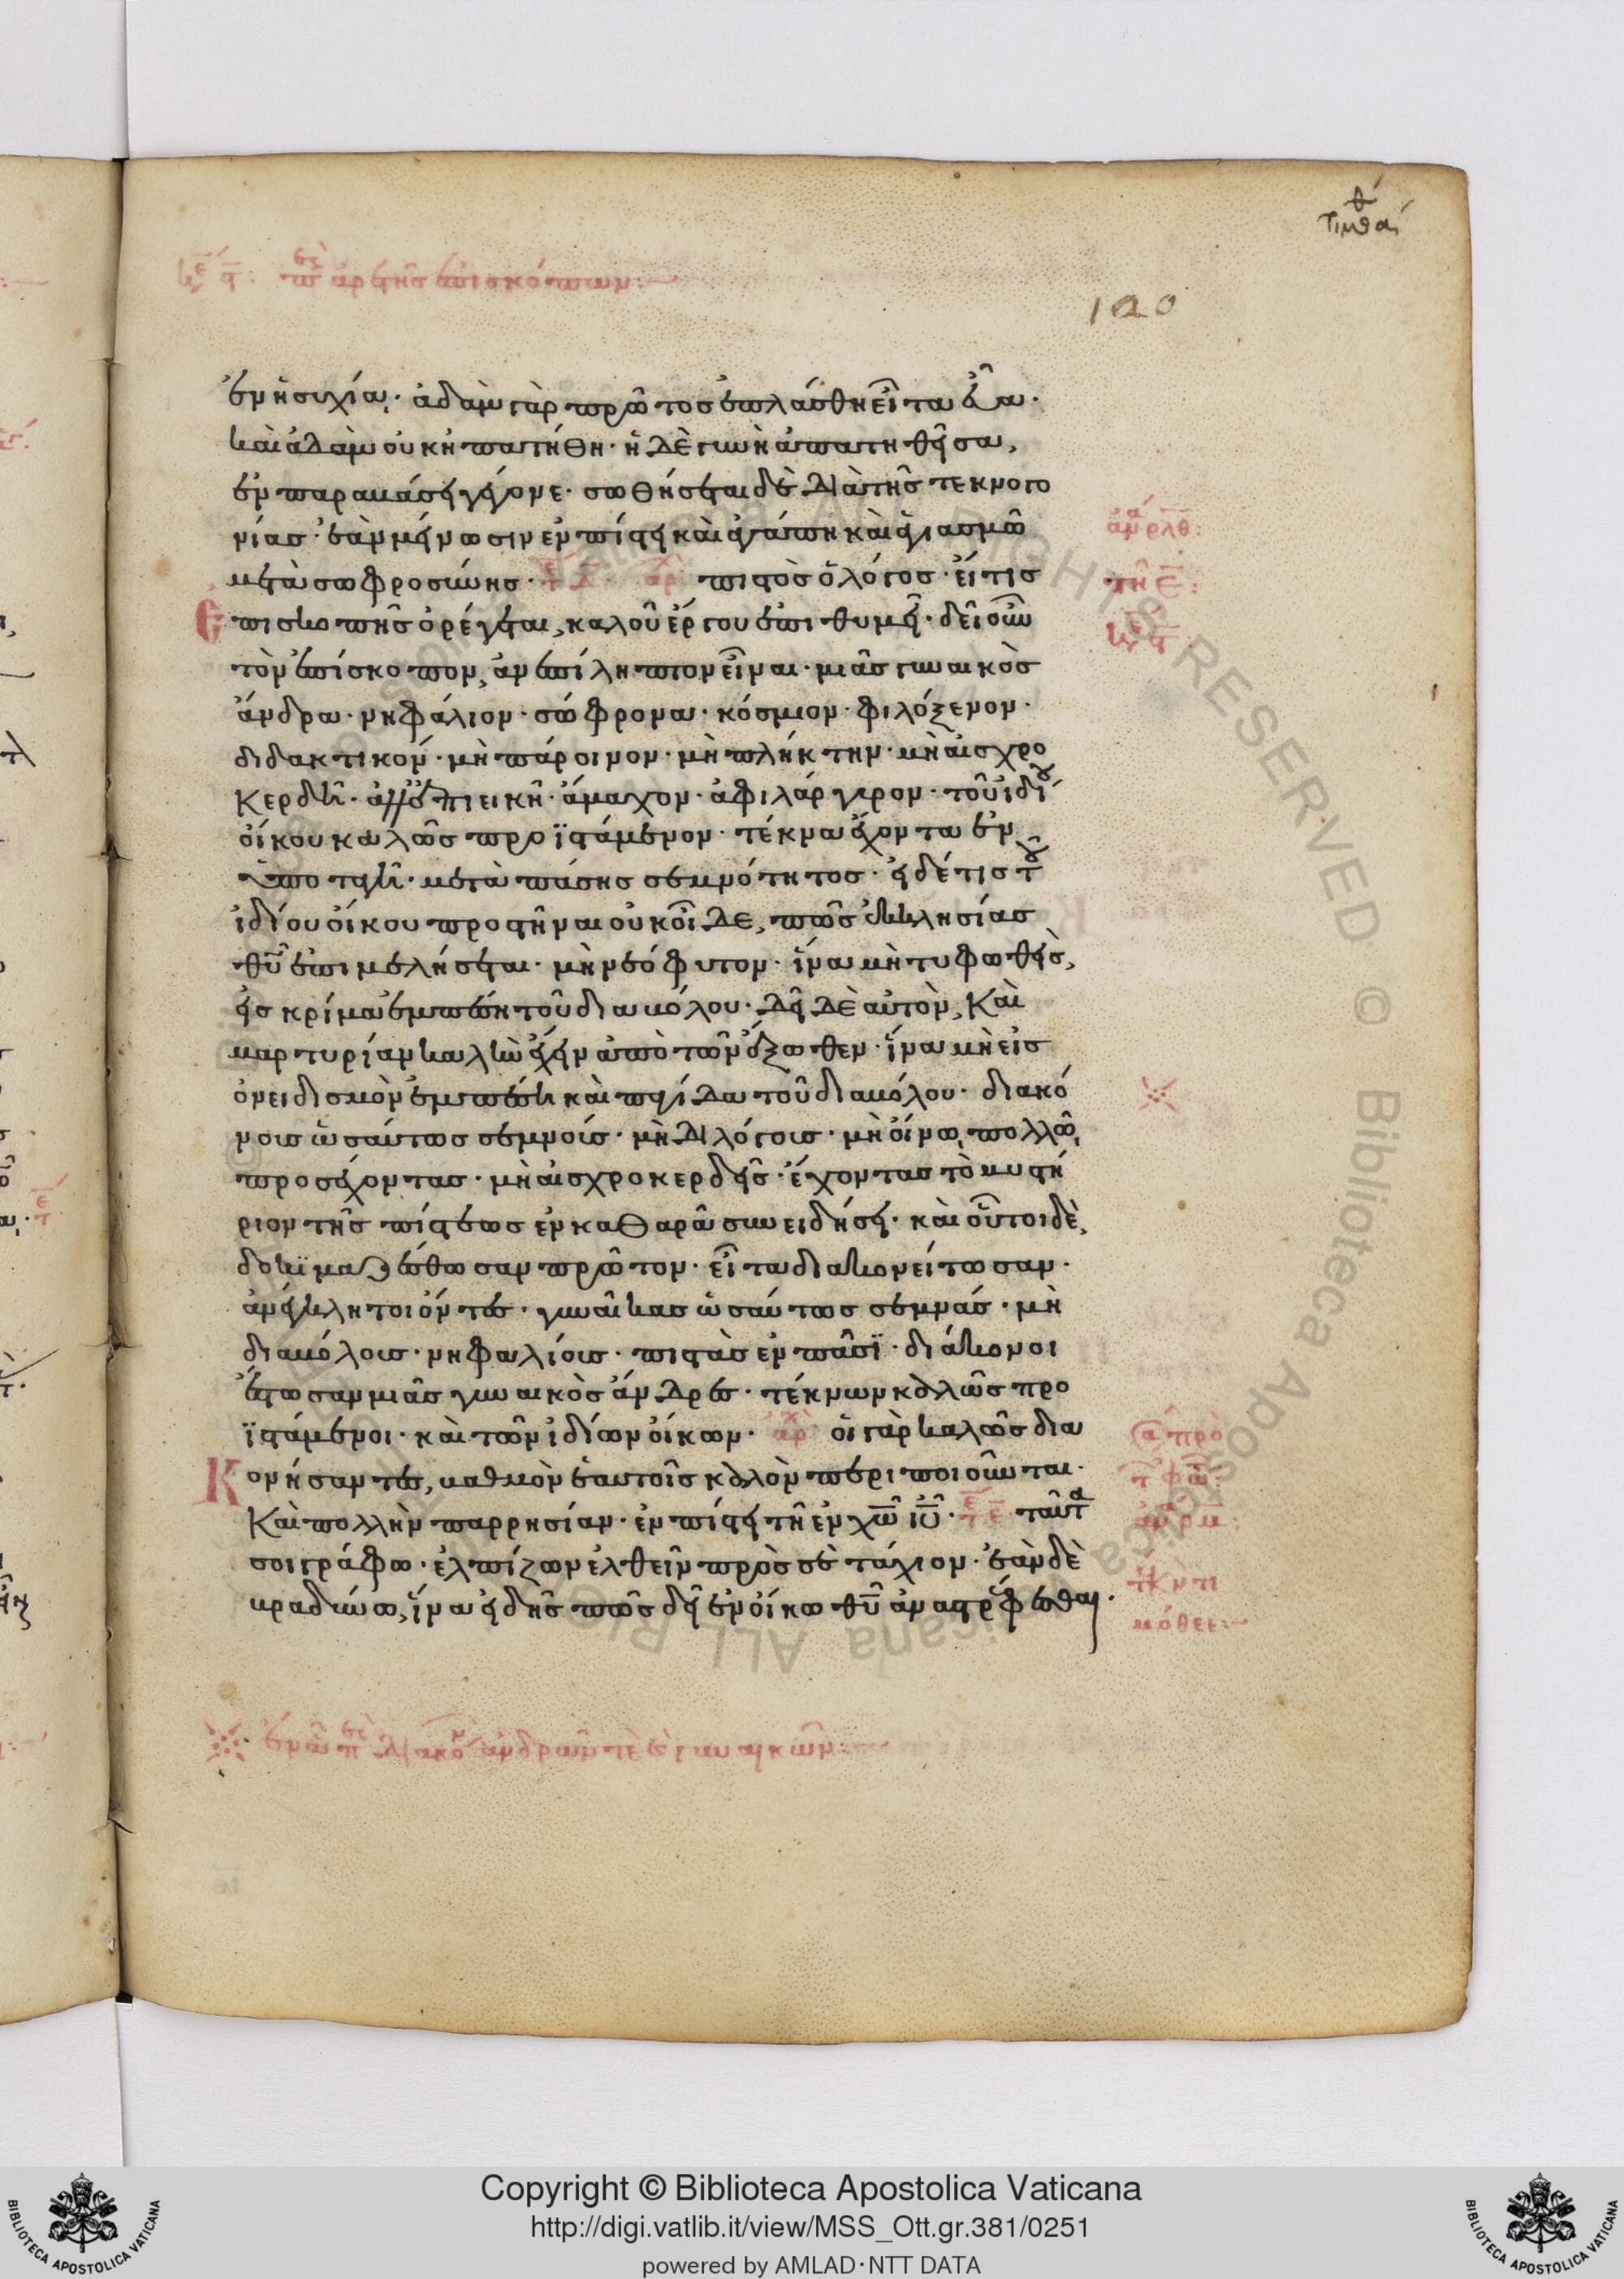 κε γ: πε ἀρετῆς ἐπισκόπων:
120
ἐν ἡσυχία· ἀδὰμ γὰρ πρῶτος ἐπλάσθη εἶτα εὖα·
καὶ ἀδὰμ οὐκ ἠπατήθη· ἡ δὲ γυνὴ ἀπατηθεῖσα,
ἐν παραβάσει γέγονε· σωθήσεται δὲ διὰ τῆς τεκνογο
νίας· ἐὰν μείνωσιν ἐν πίστει καὶ ἀγάπη καὶ ἁγιασμῶ
μετὰ σωφροσύνης· ἀρχ πιστὸς ὁ λόγος· εἴ τις
ἐπισκοπῆς ὀρέγεται, καλοῦ ἔργου ἐπιθυμεῖ· δεῖ οὖν
τὸν ἐπίσκοπον, ἀνεπίληπτον εἶναι· μιᾶς γυναικὸς
ἄνδρα· νηφάλιον· σώφρονα· κόσμιον· φιλόξενον·
διδακτικόν· μὴ πάροινον· μὴ πλήκτην· μὴ αἰσχρο
κερδῆ· ἀλλ' ἐπιεικῆ· ἄμαχον· ἀφιλάργυρον· τοῦ ἰδίου
οἴκου καλῶς προϊστάμενον· τέκνα ἔχοντα ἐν
ὑποταγῆ· μετὰ πάσης σεμνότητος· εἰ δέ τις τοῦ
ἰδίου οἴκου προστῆναι οὐκ οἶδε, πῶς ἐκκλησίας
θῦ ἐπιμελήσεται· μὴ νεόφυτον· ἵνα μὴ τυφωθεὶς,
εἰς κρίμα ἐμπέση τοῦ διαβόλου· δεῖ δὲ αὐτὸν, καὶ
μαρτυρίαν καλὴν ἔχειν ἀπὸ τῶν ἔξωθεν· ἵνα μὴ εἰς
ὀνειδισμὸν ἐμπέση καὶ παγίδα τοῦ διαβόλου· διακό
νοις ὡσαύτως σεμνοίς· μὴ διλόγοις· μὴ οἴνω πολλῶ
προσέχοντας· μὴ αἰσχροκερδεῖς· ἔχοντας τὸ μυστή
ριον τῆς πίστεως ἐν καθαρᾶ συνειδήσει· καὶ οὗτοι δὲ,
δοκιμαζέσθωσαν πρῶτον· εἶτα διακονείτωσαν·
ἀνέγκλητοι ὄντες· γυναῖκας ὡσαύτως σεμνάς· μὴ
διαβόλοις· νηφαλίοις· πιστὰς ἐν πᾶσϊ· διάκονοι
ἔστωσαν μιᾶς γυναικὸς ἄνδρες· τέκνων καλῶς προ
ϊστάμενοι· καὶ τῶν ἰδίων οἴκων· ἀρχ οἱ γὰρ καλῶς δια
Κονήσαντες, βαθμὸν ἑαυτοῖς καλὸν περιποιοῦνται·
καὶ πολλὴν παρρησίαν· ἐν πίστει τῆ ἐν χῶ ἰῦ· ταῦτα
σοι γράφω· ἐλπίζων ἐλθεῖν πρὸς σὲ τάχιον· ἐὰν δὲ
βραδύνω, ἵνα εἰδῆς πῶς δεῖ ἐν οἴκω θῦ ἀναστρέφεσθαι·
Copyright © Biblioteca Apostolica Vaticana
http://digi.vatlib.it/view/MSS_Ott.gr.381/0251
powered by AMLAD·NTT DATA